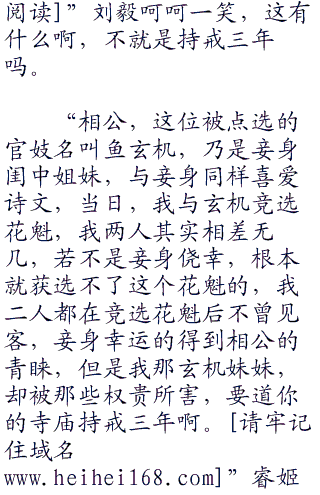 阅读]”刘毅呵呵一笑，这有
什么啊，不就是持戒三年
吗。
“相公，这位被点选的
官妓名叫鱼玄机，乃是妾身
闺中姐妹，与妾身同样喜爱
诗文，当日，我与玄机竞选
花魁，我两人其实相差无
几，若不是妾身侥幸，根本
就获选不了这个花魁的，我
二人都在竞选花魁后不曾见
客，妾身幸运的得到相公的
青睐，但是我那玄机妹妹，
却被那些权贵所害，要道你
的寺庙持戒三年啊。[请牢记
住域名
www.heihei168.com]”睿姬